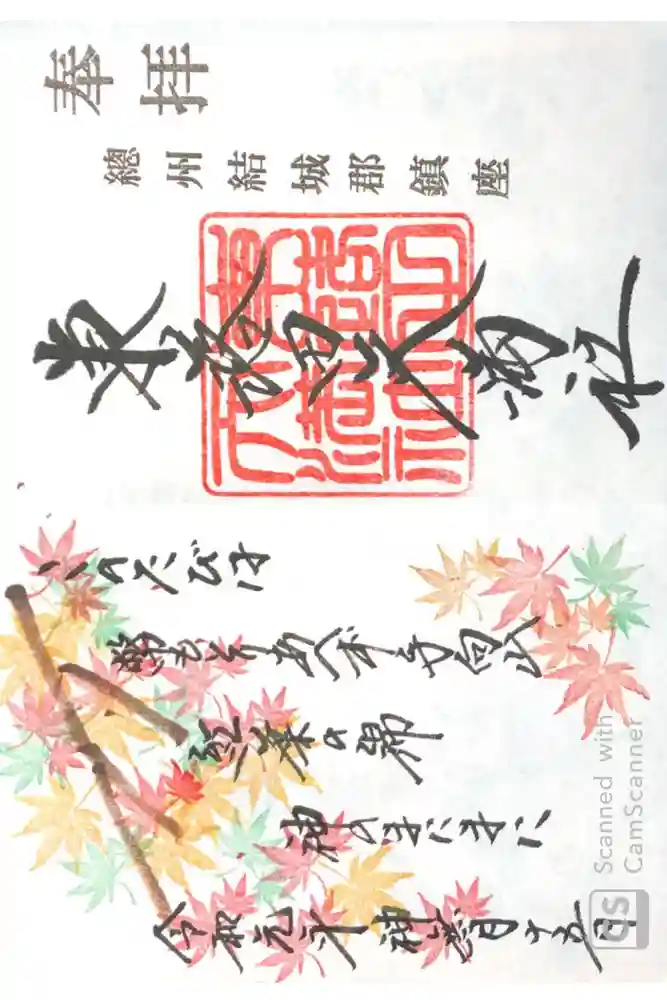 奉拝
總州結城郡鎮座
東蕗田天満社
このたびは
幣もとりあへず手向山
紅葉の錦
神のまにまに
令和元年神無月十五日
Scanned with
CamScanner
CS